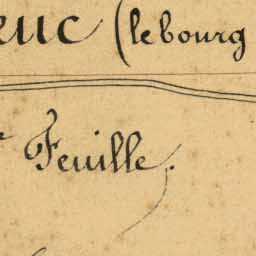 euc (le bourg
e Feuille.